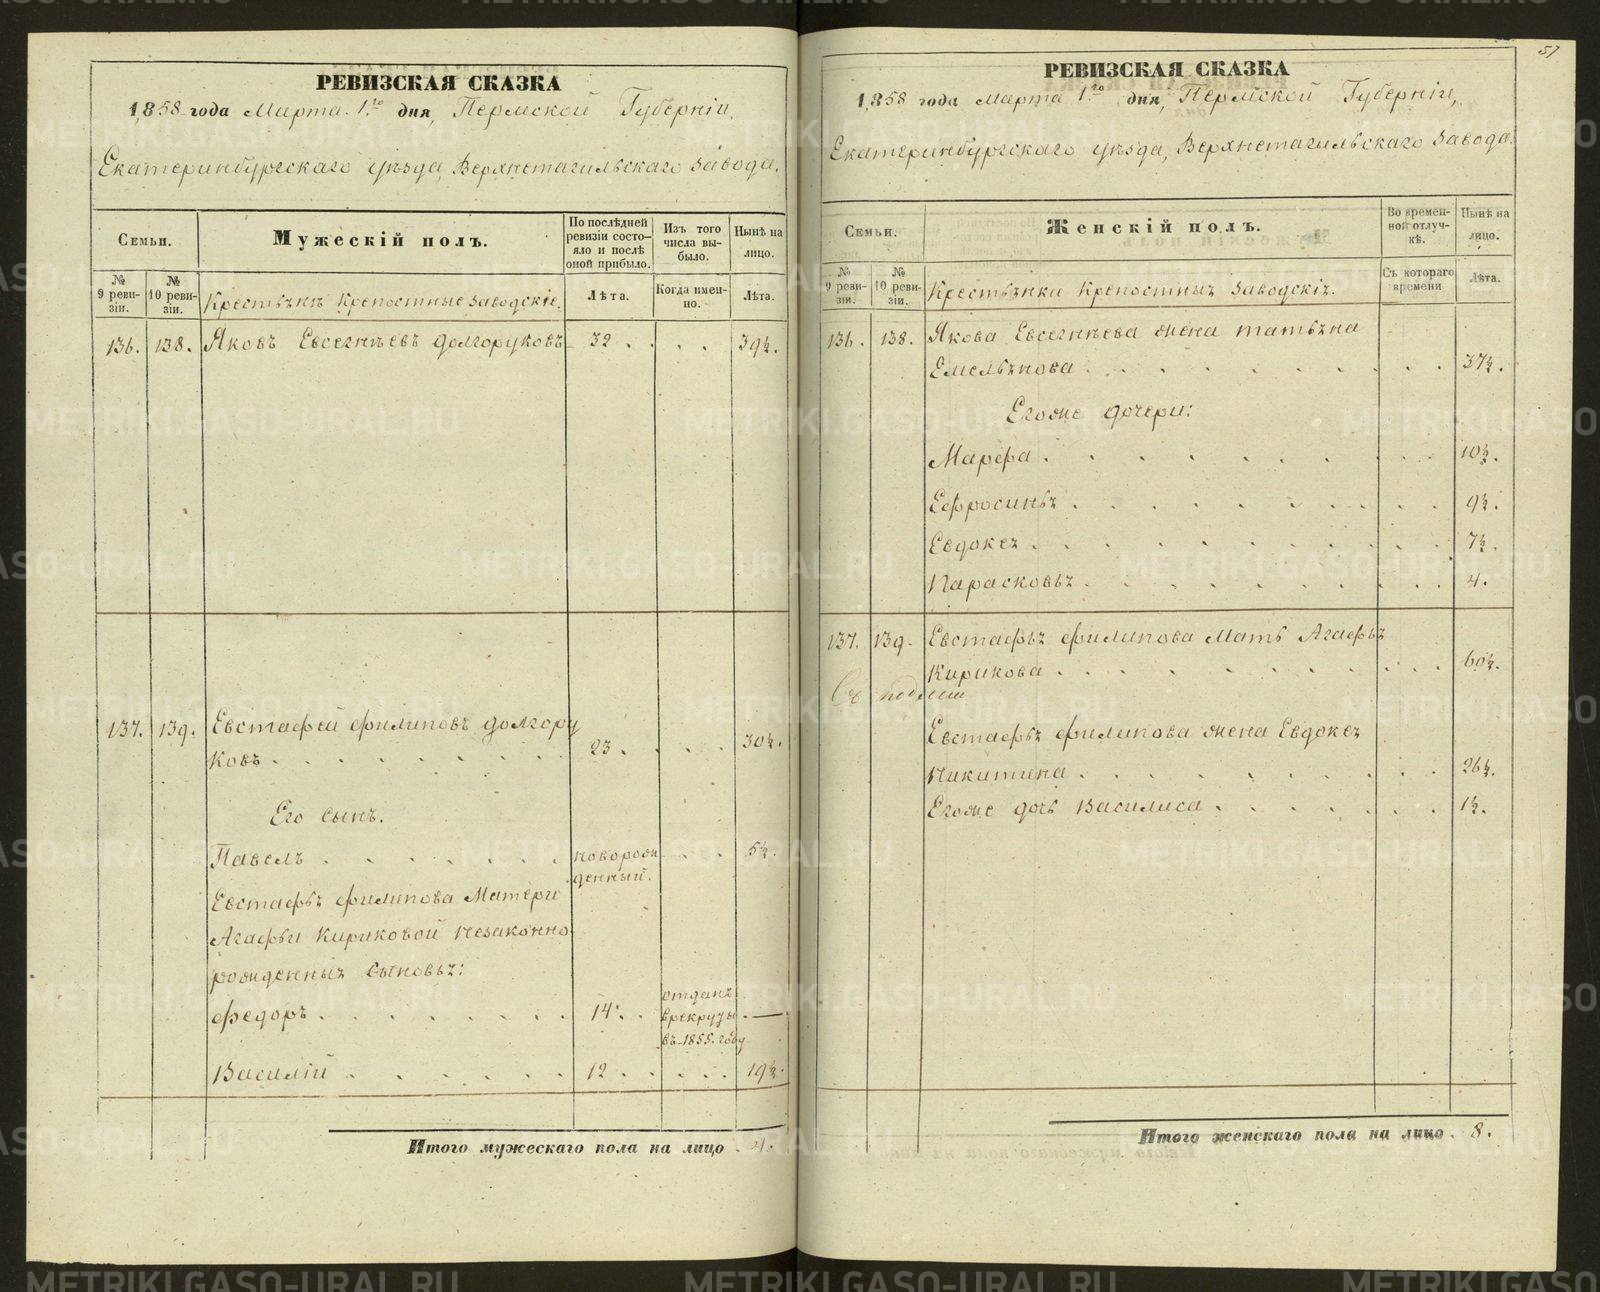 РЕВИЗСКАЯ СКАЗКА
1858 года Марта 1го дня, Пермской Губерніи,
Екатеринбургскаго уѣзда, Верхнетагильскаго Завода.
Семьи.
Мужескій полъ.
По послѣдней ревизіи состояло и послѣ оной прибыло.
Изъ того числа выбыло.
Нынѣ на лицо.
№ 9 ревизіи.
№ 10 ревизіи.
Крестьяне Крепостные Заводскіе.
Лѣта.
Когда именно.
Лѣта.
136. 138. Яковъ Евсегнѣевъ Долгоруковъ 32 . . . . 39½.
137. 139. Евстафей Филиповъ Долгору
ковъ . . . . . . . . 23 . . . . 30½.
Его сынъ.
Павелъ . . . . . . . новорож
денный. . . . 5½.
Евстафья Филипова Матери
Агафьи Кириковой Незаконно-
рожденныя Сыновья:
Федоръ . . . . . . . 14 . . отданъ
в рекруты . —
въ 1855 году
Василій . . . . . . 12 . . . . . 19½.
Итого мужескаго пола на лицо . 4.
57
РЕВИЗСКАЯ СКАЗКА
1858 года Марта 1го дня, Пермской Губерніи,
Екатеринбургскаго уѣзда, Верхнетагильскаго Завода.
Семьи.
Женскій полъ.
Во временной отлучкѣ.
Нынѣ на лицо.
№ 9 ревизіи.
№ 10 ревизіи.
Крестьянки Крепостныя Заводскія.
Съ котораго времени
Лѣта.
136. 138. Якова Евсегнѣева жена Татьяна
Емельянова . . . . . . . . . . 37½.
Егоже дочери:
Марфа . . . . . . . . . . 10½.
Ефросинья . . . . . . . . . 9½.
Евдокея . . . . . . . . . . 7½.
Парасковья . . . . . . . . . 4.
137. 139. Евстафья Филипова Мать Агафья
Кирикова . . . . . . . . . . 60½.
Евстафья Филипова жена Евдокея
Никитина . . . . . . . . . 26½.
Егоже дочь Василиса . . . . . . 1½.
Итого женскаго пола на лицо . 8.
METRIKI.GASO-URAL.RU